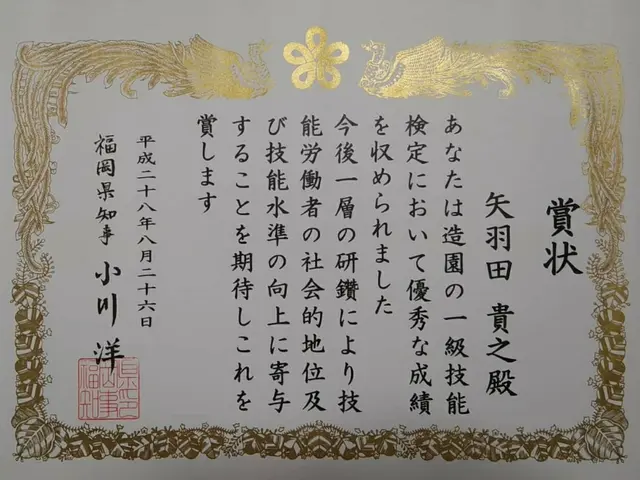 賞状
矢羽田 貴之殿
あなたは造園の一級技能
検定において優秀な成績
を収められました
今後一層の研鑽により技
能労働者の社会的地位及
び技能水準の向上に寄与
することを期待しこれを
賞します
平成二十八年八月二十六日
福岡県知事 小川 洋